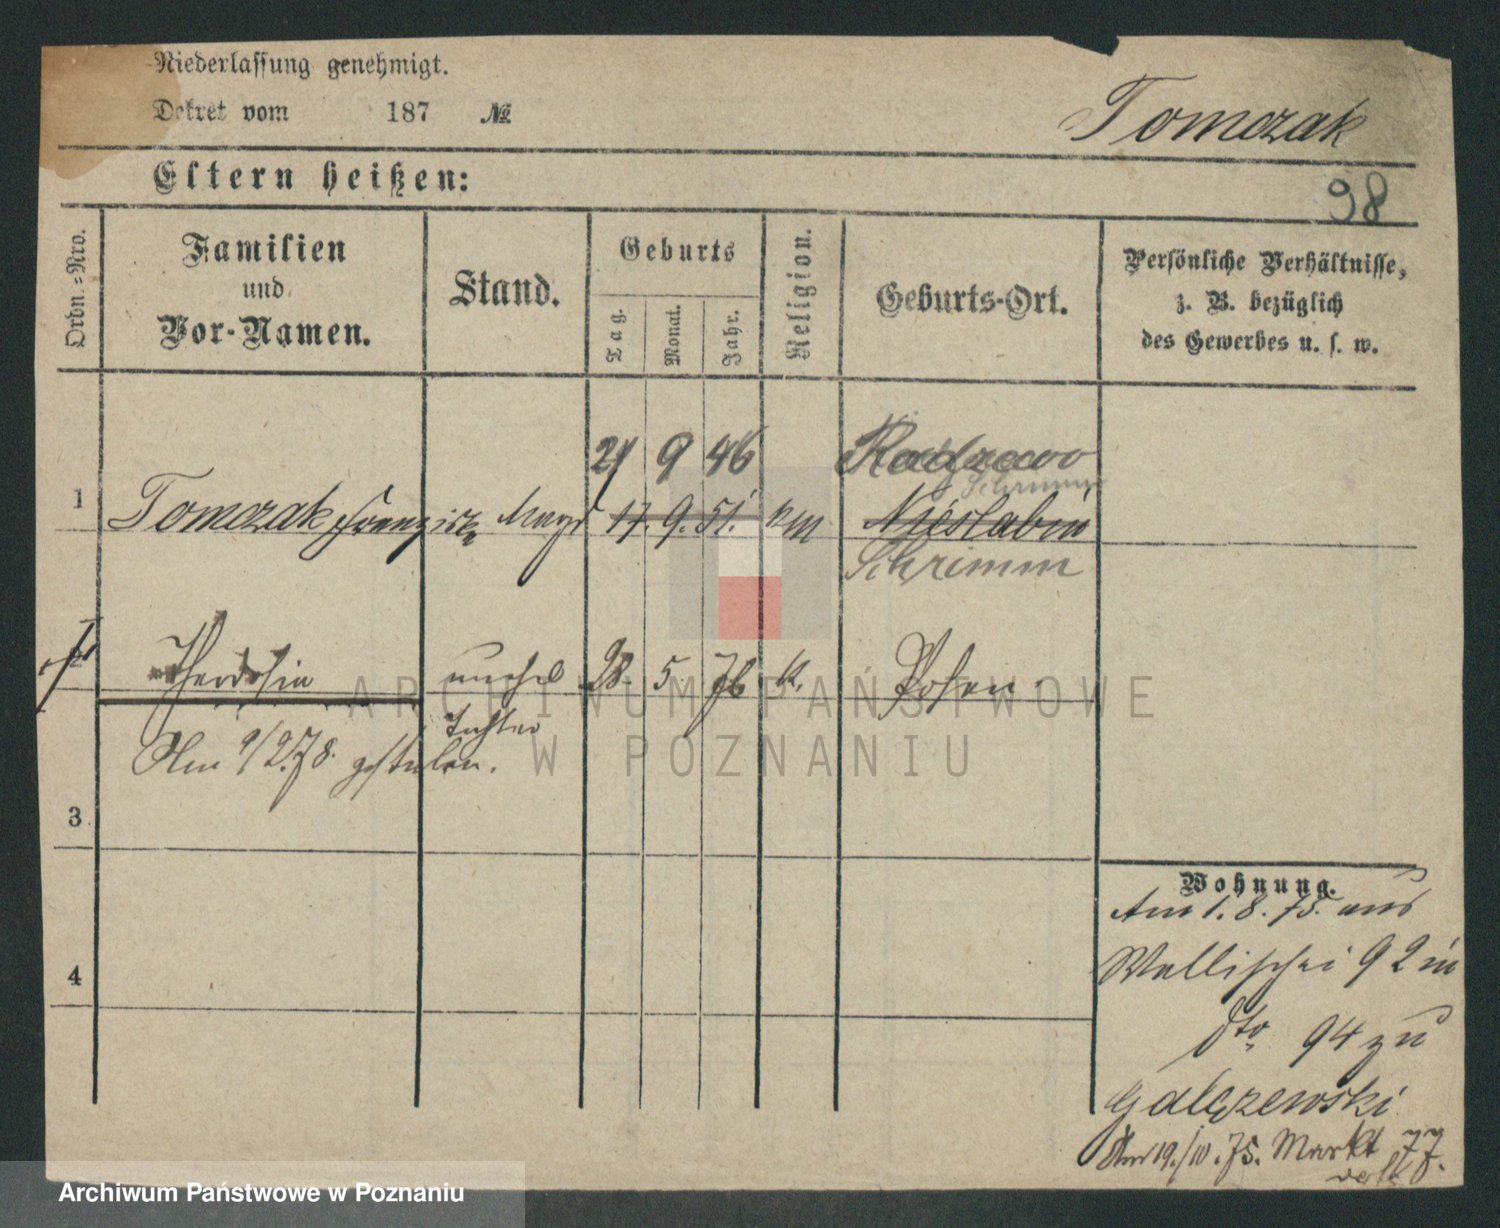 Niederlassung genehmigt.
Dekret vom 187 №
Tomczak
Eltern heißen:
98
Ordn.-Nro.
Familien
und
Vor-Namen.
Stand.
Geburts
Tag.
Monat.
Jahr.
Religion.
Geburts-Ort.
Persönliche Verhältnisse,
z. B. bezüglich
des Gewerbes u. s. w.
21 9 46 Radzewo
Schrimm
1 Tomczak Franziska Magd 17. 9. 51. Niesłabin
Schrimm
unehel 28. 5. 76 k. Posen
Tochter
Am 9/2.78. gestorben.
3
4
Wohnung.
Am 1. 8. 75. aus
Wallischei 92 in
dto 94 zu
Galęzewski
Am 19./10. 75. Markt 77.
ARCHIWUM PAŃSTWOWE
W POZNANIU
Archiwum Państwowe w Poznaniu